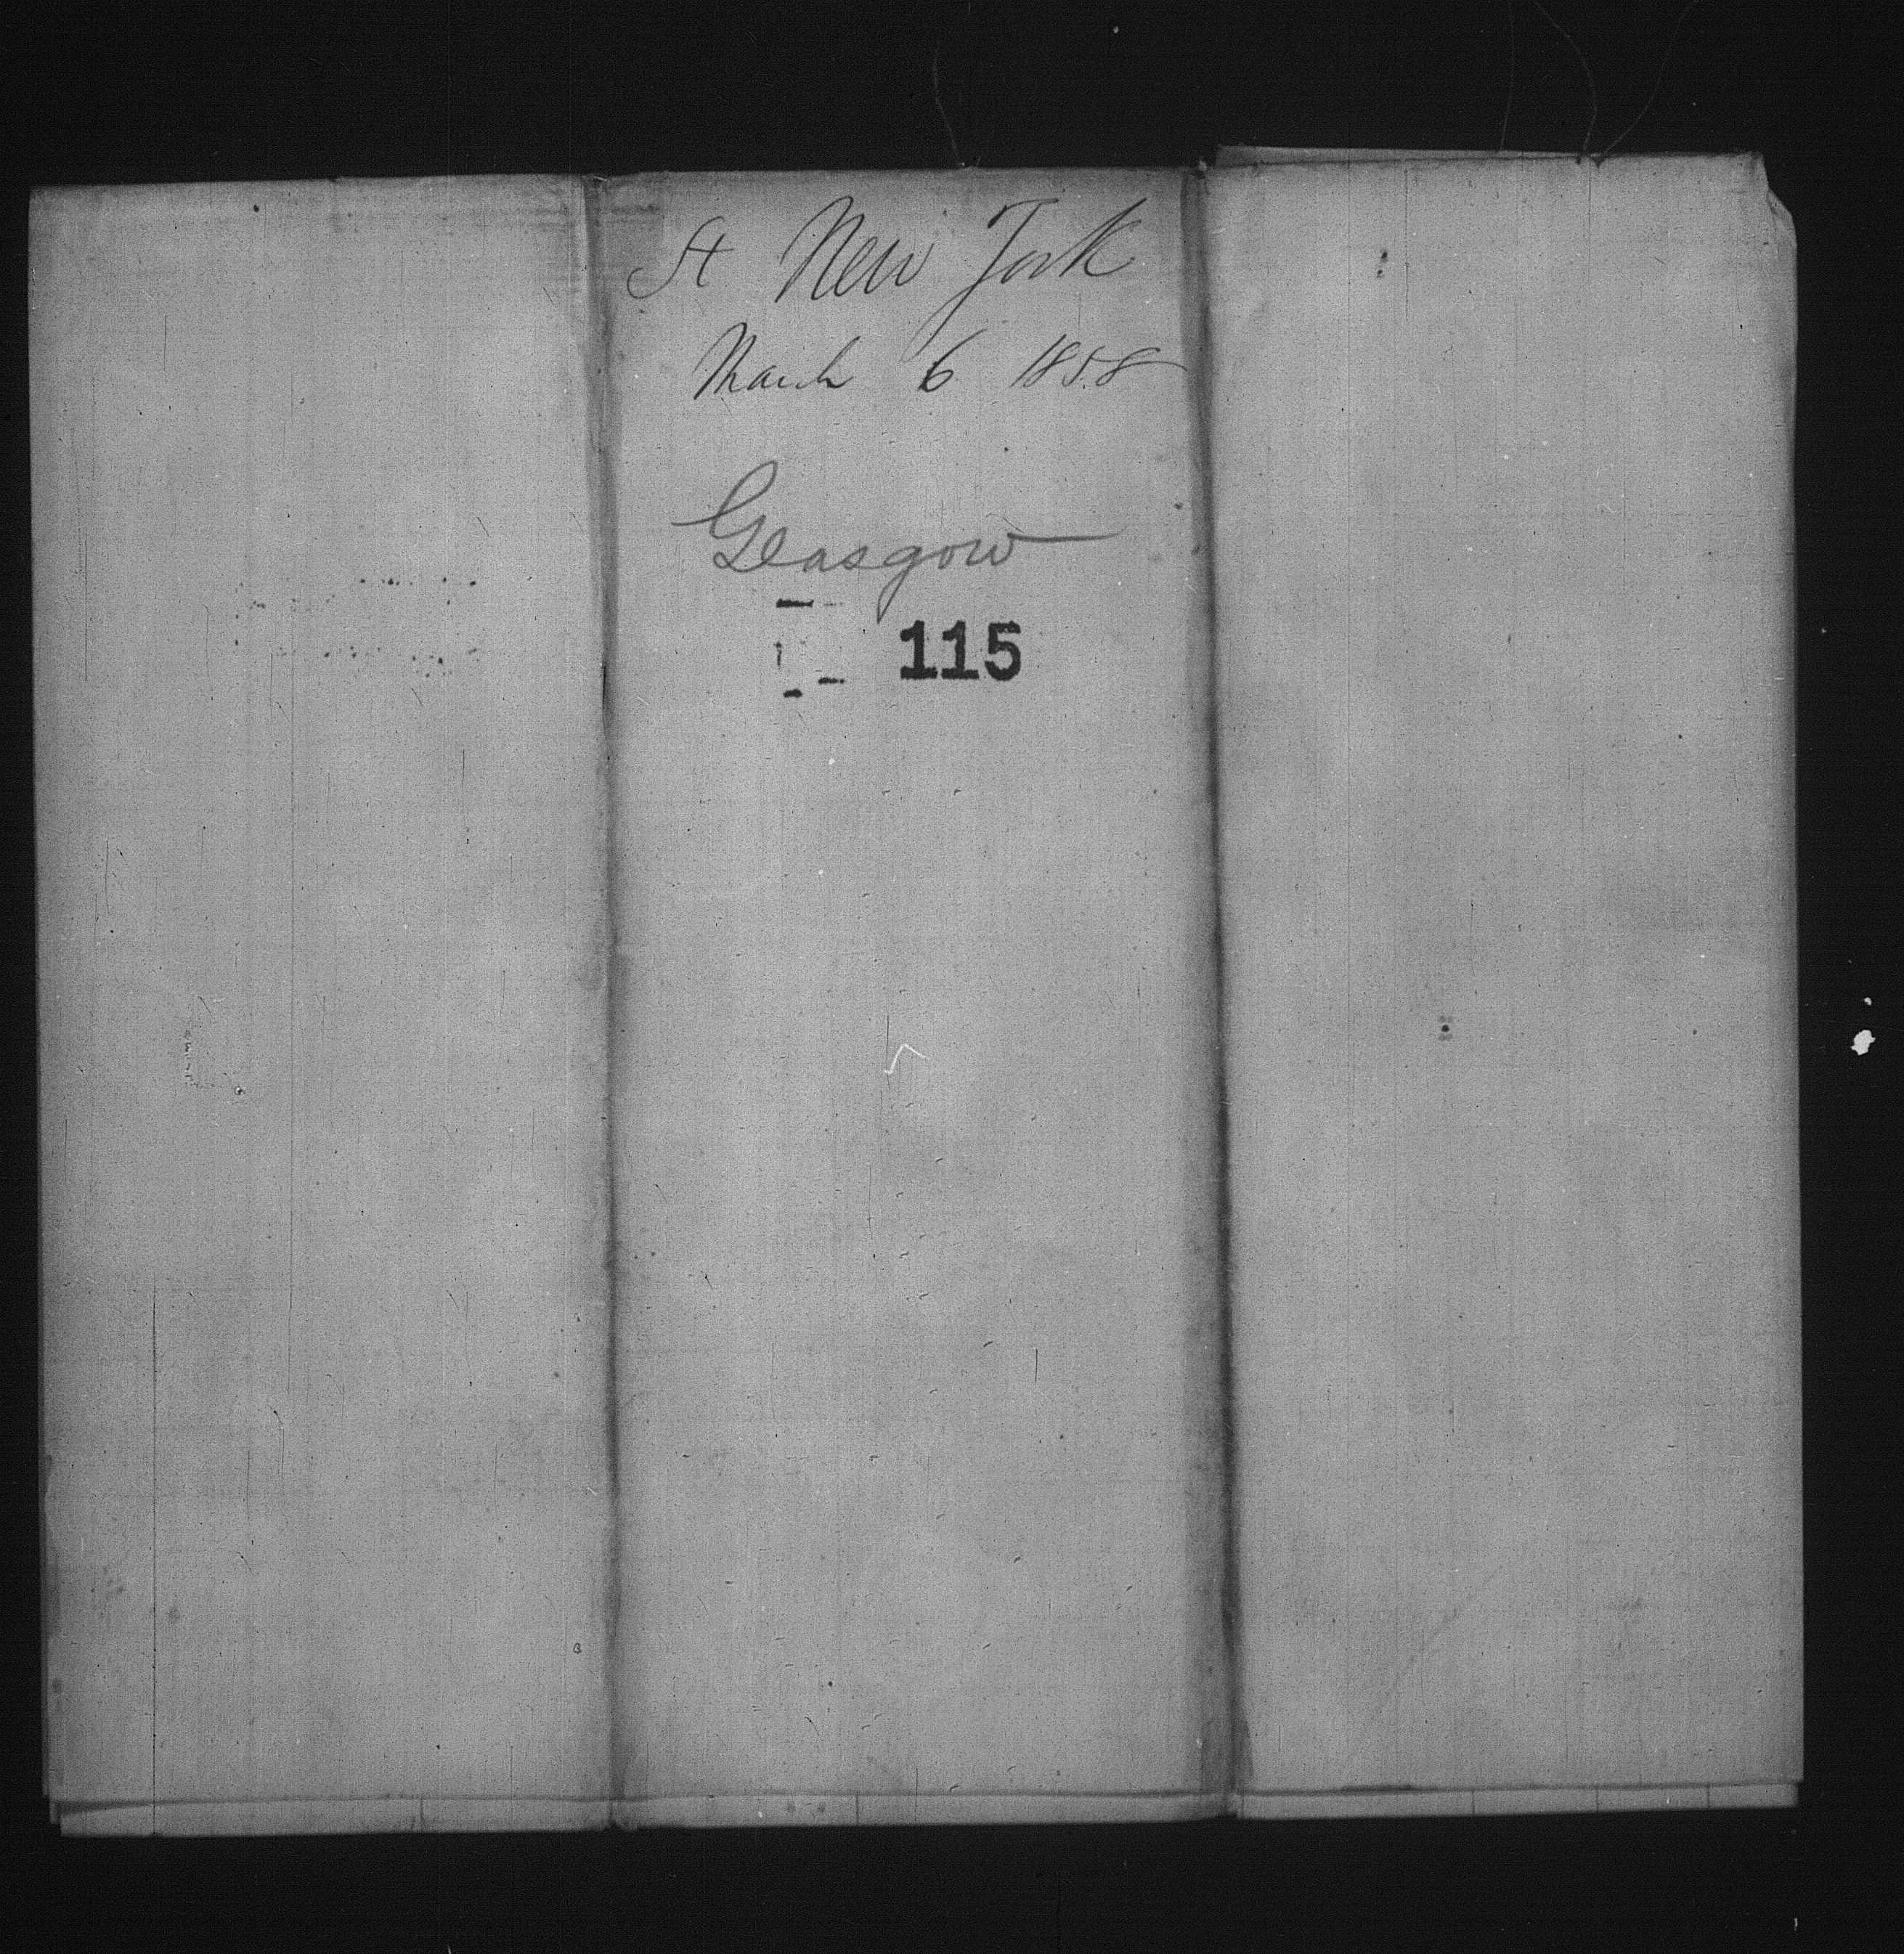 St New York
March 6 1858
Glasgow
115